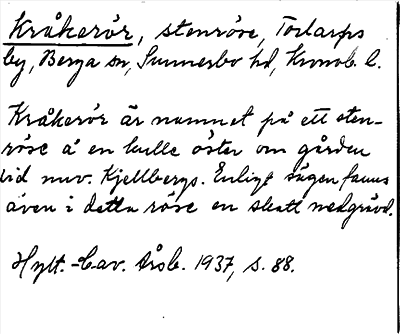 Kråkerör, stenröse, Torlarps
by, Berga sn, Sunnerbo hd, Kronob. l.
Kråkerör är namnet på ett sten-
röse å en kulle öster om gården
vid nuv. Kjellbergs. Enligt sägen fanns
även i detta röse en skatt nedgrävd.
Hylt.-Cav. Årsb. 1937, s. 88.